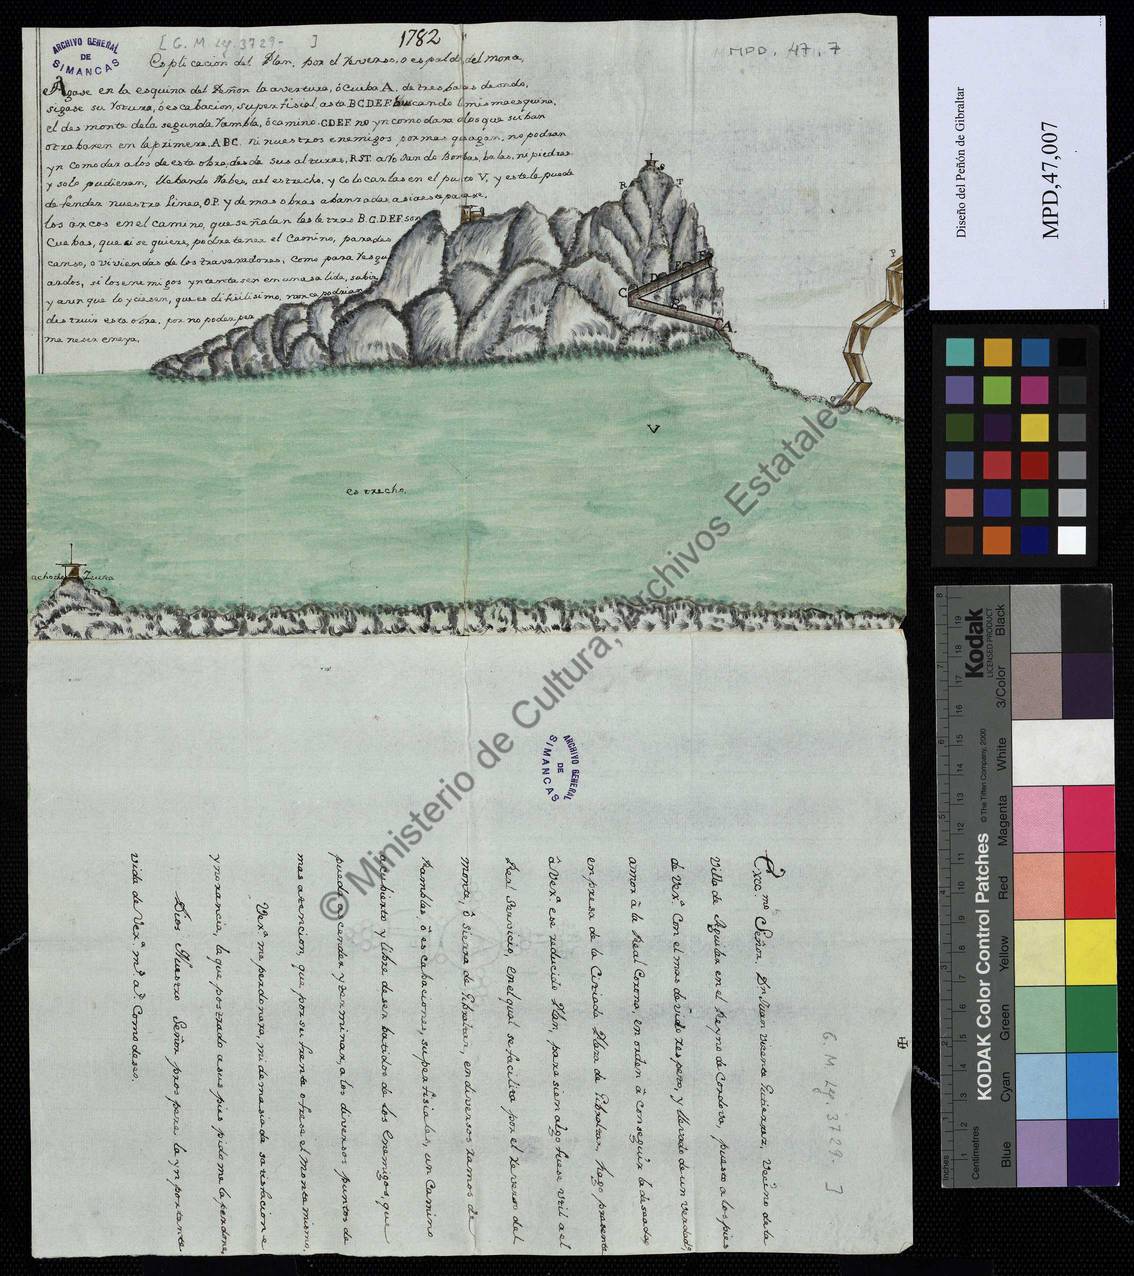 ARCHIVO GENERAL
DE
SIMANCAS
[G. M. Lg. 3729- ]
1782
MPD. 47. 7
Esplicacion del Plan, por el Reverso, o espalda del monte,
Agase en la esquina del Peñon la avertura, ó Cueba A. de tres baras de ondo,
sigase su Rotura, ó escabacion, superfisial, asta B C D E F. buscando lamisma esquina,
el des monte dela segunda Rambla, ó camino. C D E F. no yncomodara alos que suban
otrabaren en la primera. A B C. ni nuestros enemigos por mas que agan, no podran
yn comodar a los de esta obra, desde sus alturas, R S T. a Rojando Bombas, balas, ni piedras
y solo pudieran, llebando Nabes, ael estrecho, y colocarlas en el punto V, y este le puede
defender nuestra linea, O P. y demas obras abanzadas asia esa parte.
los arcos en el camino, que señalan las letras B. C. D. E. F. son
Cuebas, que si se quiere, podra tener el Camino, para des
canso, o viviendas de los travaxadores, como para Resgu
ardos, si los enemigos yntentasen en una salida, subir,
y aunque lo ysiesen, que es dificilisimo, nunca podrian
destruir esta obra, por no poder per
manecer en eya.
R
S
T
P
F
E
D
C
B
A.
O
V
estrecho.
acho de Zeuta
ARCHIVO GENERAL
DE
SIMANCAS
Exc.mo Señor. Dn Juan Vicente Gutierrez, Vecino de la
Villa de Aguilar en el Reyno de Cordova, puesto a los pies
de Vex.a Con el mas devido respeto, y llevado de un verdad.o
amor à la Real Corona, en orden à conseguir la deseada
enpresa de la Citiada Plaza de Gibraltar, hago presente
â Vex.a ese reducido Plan, para si en algo fuese util a el
Real Servicio, en el qual se facilita por el Reverso del
monte, ô Sierra de Gibraltar, en diversos tramos de
Ramblas, ô escabaciones, superfisiales, un Camino
a cubierto y libre de ser batidos de los Enemigos, que
pueda ascender y terminar, a los diversos puntos de
mas atencion, que por su frente ofrese el Monte mismo,
Vex.a me perdonara, mi demasiada satisfacion e
ynorancia, la que postrado a sus pies pido me la perdone,
Dios Nuestro Señor prospere la ynportante
vida de Vex.a m.s a.s Como deseo.
G. M. Lg. 3729. ]
© Ministerio de Cultura, Archivos Estatales
Diseño del Peñón de Gibraltar
MPD,47,007
Kodak
LICENSED PRODUCT
KODAK Color Control Patches
© The Tiffen Company, 2000
Inches
Centimetres
Blue
Cyan
Green
Yellow
Red
Magenta
White
3/Color
Black